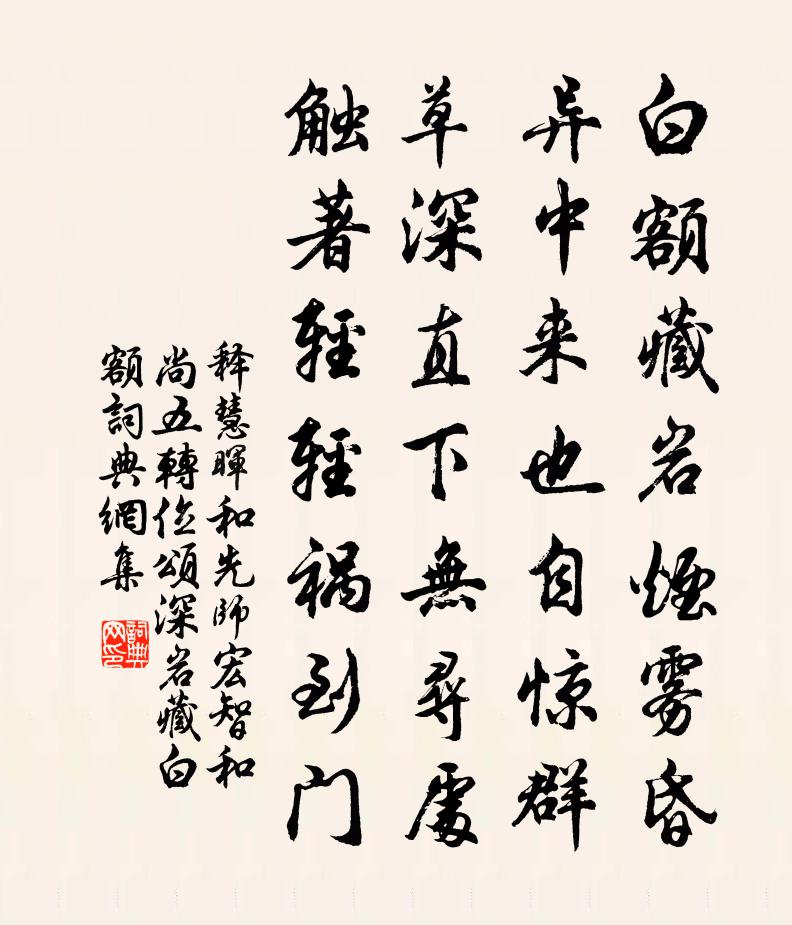 白额藏岩煙雾昏
异中来也自惊群
草深直下無尋處
触著輕輕祸到门
释慧暉和先师宏智和
尚五轉位頌深岩藏白
额詞典網集
詞典网印